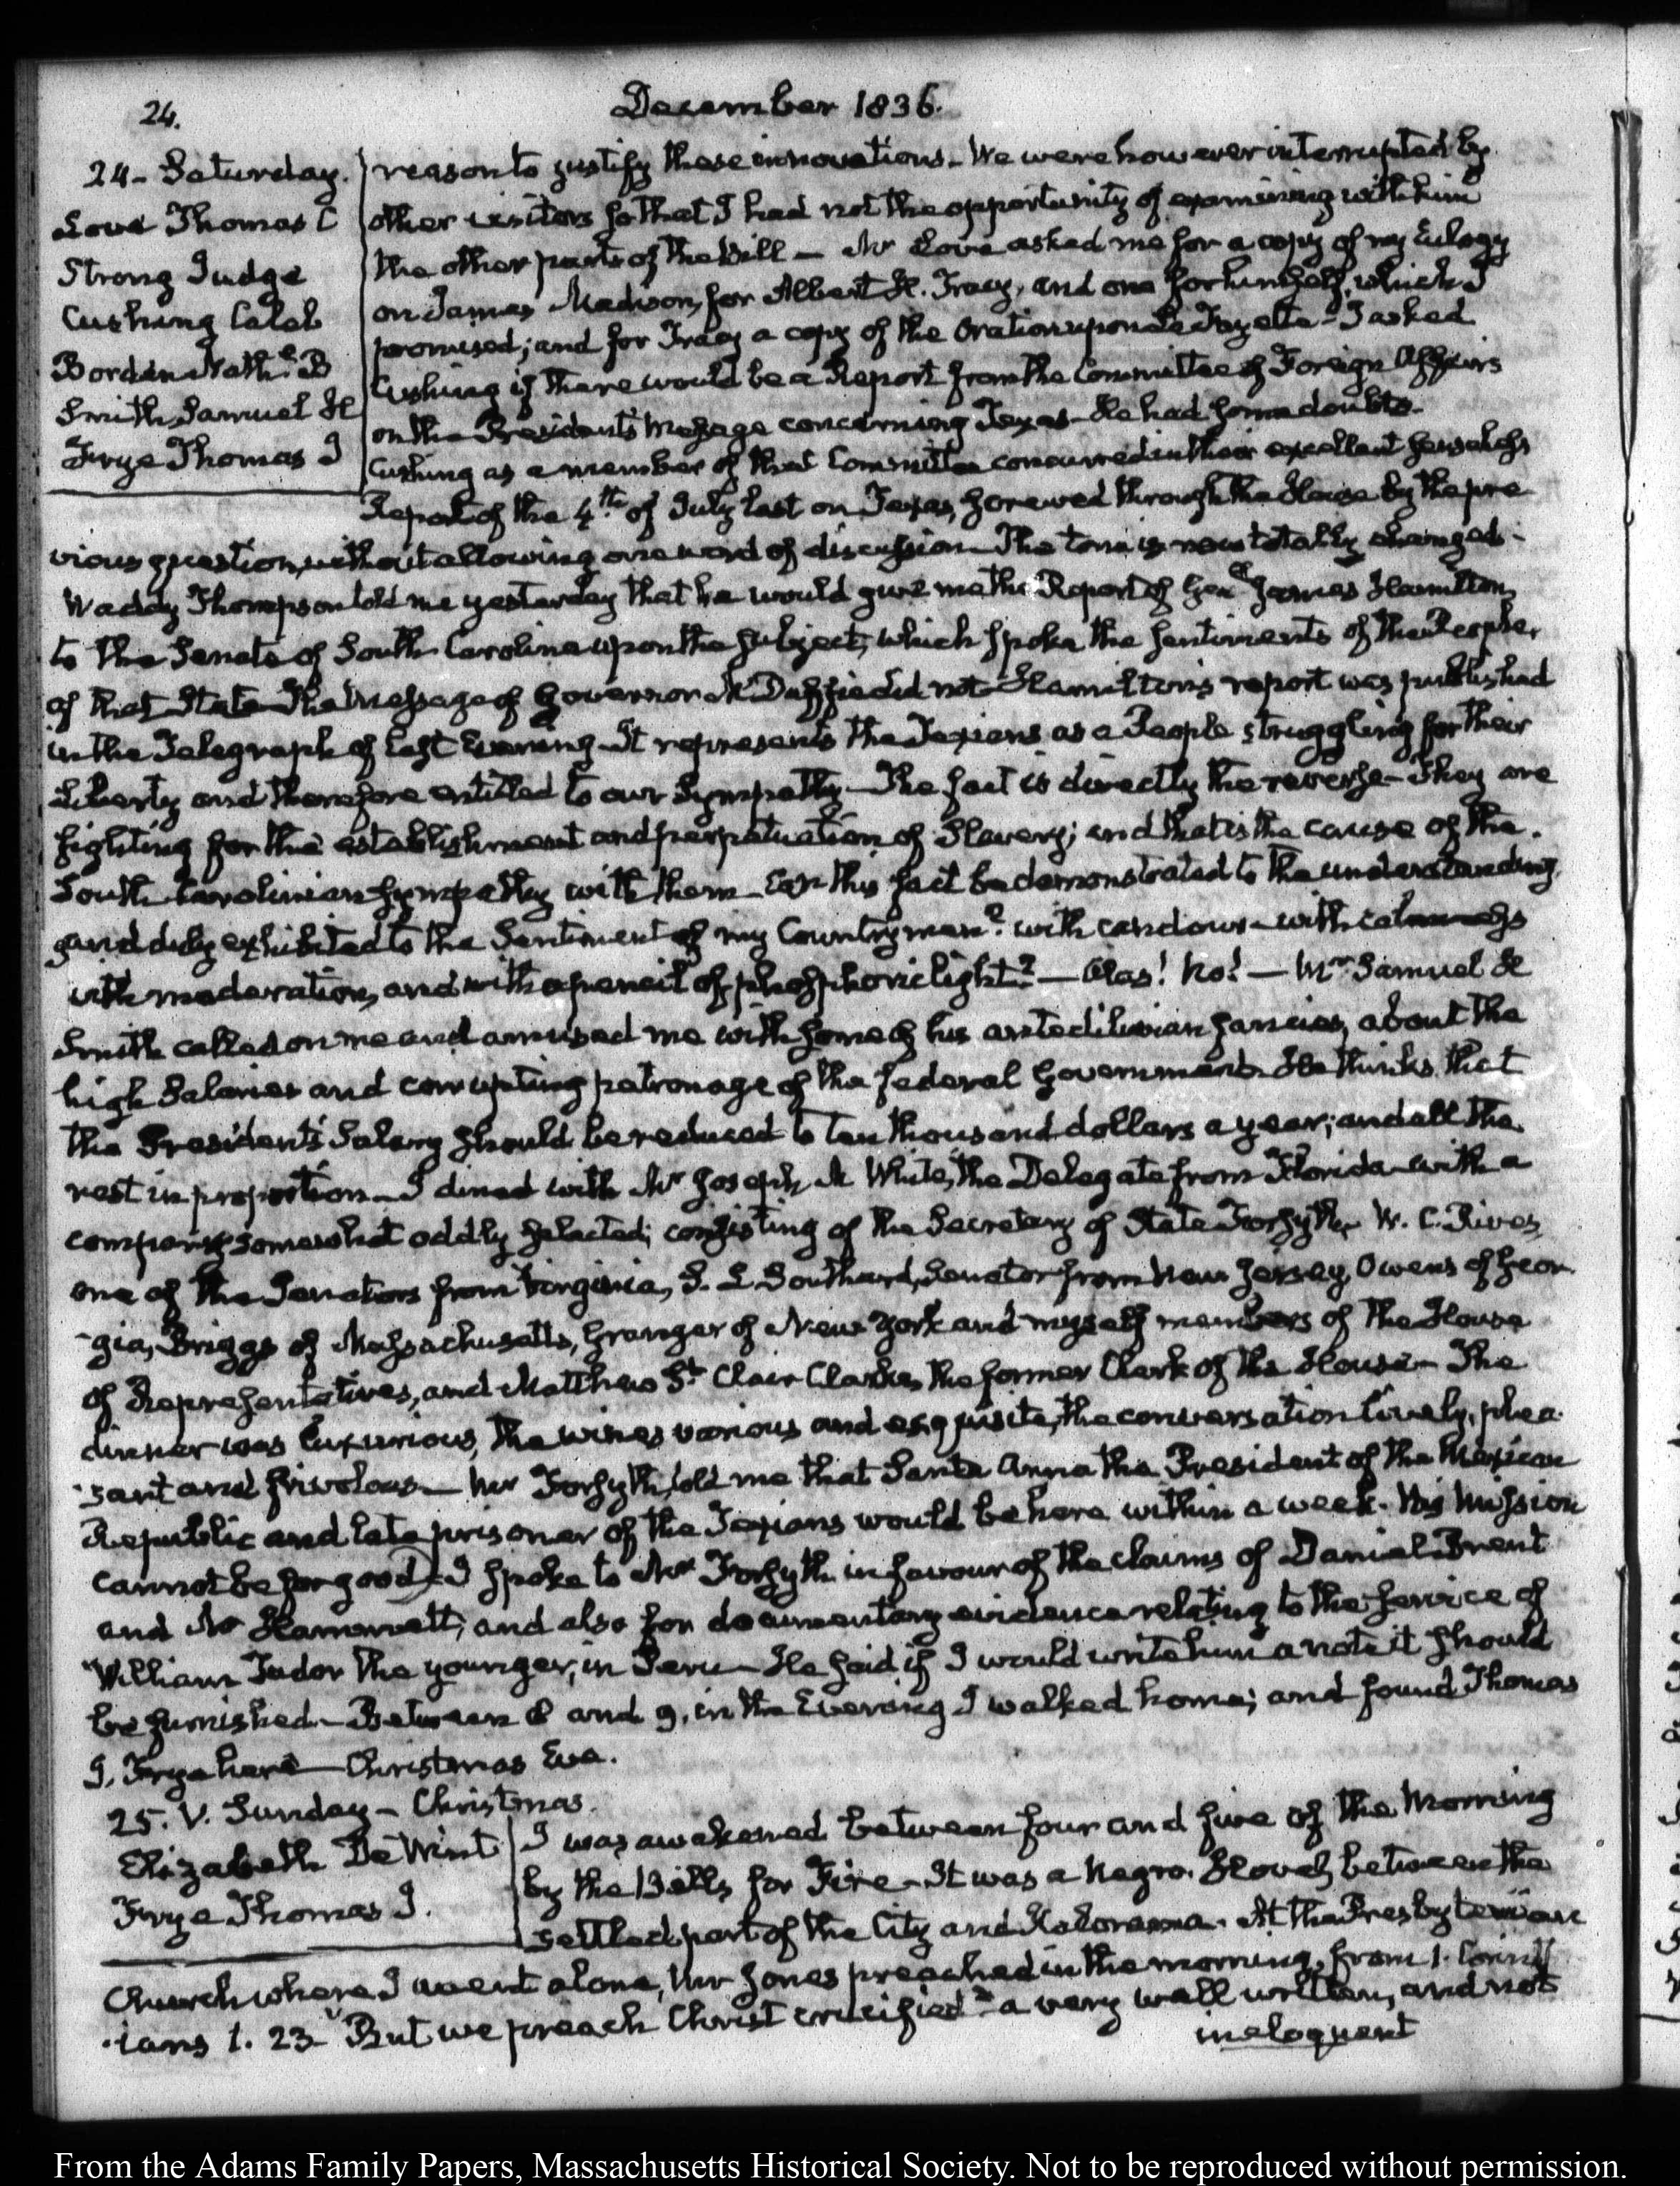 24.
December 1836.
24 - Saturday.
Love Thomas C
Strong Judge
Cushing Caleb
Borden Nath.l B
Smith Samuel H
Frye Thomas J
reason to justify these innovations - We were however interrupted by
other visitors so that I had not the opportunity of examining with him
the other parts of the Bill — Mr Love asked me for a copy of my Eulogy
on James Madison, for Albert H. Tracy, and one for himself, which I
promised; and for Tracy a copy of the Oration upon La Fayette - I asked
Cushing if there would be a Report from the Committee of Foreign Affairs
on the President's Message concerning Texas - He had some doubts -
Cushing as a member of that Committee concurred in their excellent
Report of the 4th of July last on Texas, screwed through the House by the pre
vious question, without allowing one word of discussion - The tone is now totally changed -
Waddy Thompson told me yesterday that he would give me the Report of Genl James Hamilton,
to the Senate of South Carolina upon the subject, which spoke the sentiments of the People,
of that State - The Message of Governor McDuffie did not - Hamilton's report was published
in the Telegraph of last Evening - It represents the Texians as a People struggling for their
Liberty and therefore entitled to our Sympathy - The fact is directly the reverse - They are
fighting for the establishment and perpetuation of Slavery; and that is the cause of the
South Carolinian sympathy with them - Can this fact be demonstrated to the understanding,
and duly exhibited to the Sentiment of my Countrymen? with candour - with calmness
with moderation, and with a pencil of phosphoric light? — Alas! No! — Mr Samuel H
Smith called on me and amused me with some of his antediluvian fancies, about the
high Salaries and corrupting patronage of the federal Government - He thinks that
the President's Salary should be reduced to ten thousand dollars a year; and all the
rest in proportion - I dined with Mr Joseph M White, the Delegate from Florida - with a
company somewhat oddly selected; consisting of the Secretary of State Forsyth, W. C. Rives,
one of the Senators from Virginia, S. L Southard, Senator from New Jersey, Owens of Geor
gia, Briggs of Massachusetts, Granger of New York and myself members of the House
of Representatives, and Matthew St Clair Clarke, the former Clerk of the House - The
dinner was luxurious, the wines various and exquisite, the conversation lively, plea
sant and frivolous - Mr Forsyth told me that Santa Anna the President of the Mexican
Republic and late prisoner of the Texians would be here within a week. His Mission
cannot be for good) I spoke to Mr Forsyth in favour of the claims of Daniel Brent
and Mr Hammett, and also for documentary evidence relating to the service of
William Tudor the younger, in Peru - He said if I would write him a note it should
be furnished - Between 8 and 9, in the Evening I walked home; and found Thomas
J. Frye here - Christmas Eve.
25. V. Sunday - Christmas.
Elizabeth De Wint
Frye Thomas J.
I was awakened between four and five of the Morning
by the Bells for Fire - It was a Negro Hovel, between the
settled part of the City and Kalorama. At the Presbyterian
Church where I went alone, Mr Jones preached in the morning, from 1. Corinth
ians 1. 23 "But we preach Christ crucified" a very well written, and not
ineloquent
From the Adams Family Papers, Massachusetts Historical Society. Not to be reproduced without permission.